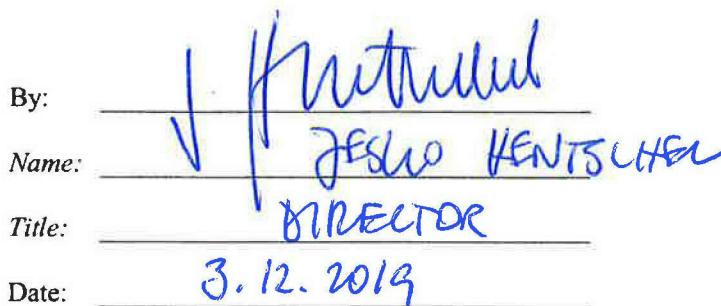 By:
Name: JESKO HENTSCHEL
Title: DIRECTOR
Date: 3.12.2019